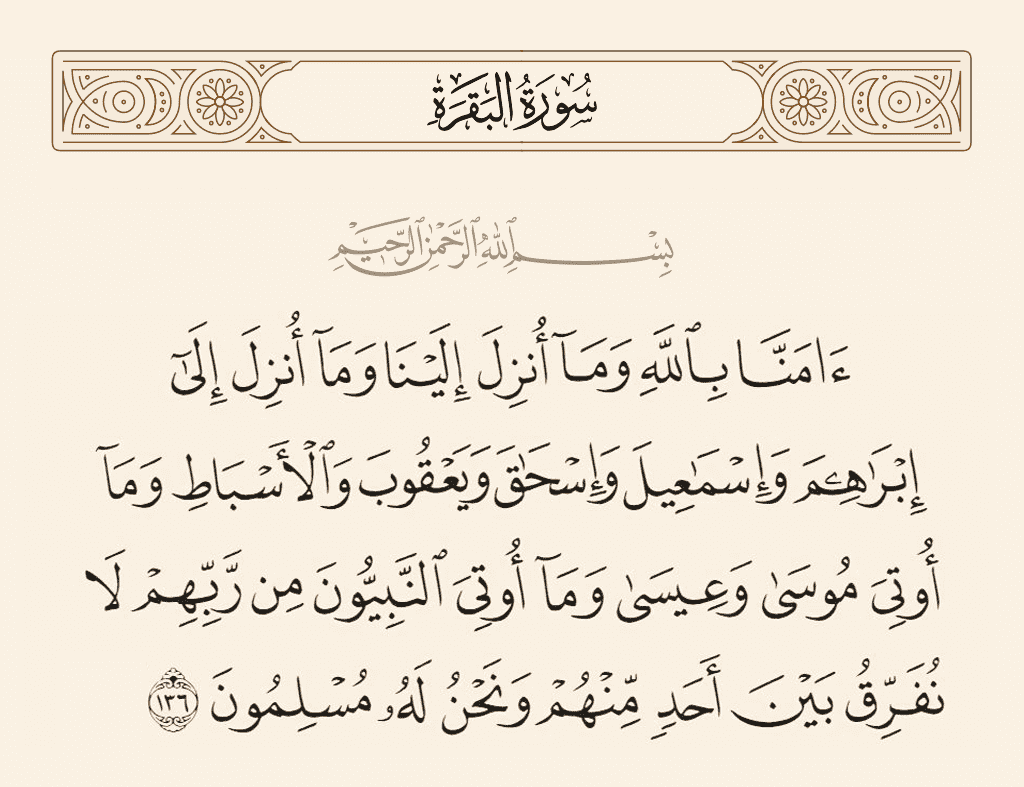 سُورَةُ البَقَرَةِ
بِسْمِ ٱللَّهِ ٱلرَّحْمَٰنِ ٱلرَّحِيمِ
ءَامَنَّا بِٱللَّهِ وَمَآ أُنزِلَ إِلَيْنَا وَمَآ أُنزِلَ إِلَىٰٓ
إِبْرَٰهِـۧمَ وَإِسْمَٰعِيلَ وَإِسْحَٰقَ وَيَعْقُوبَ وَٱلْأَسْبَاطِ وَمَآ
أُوتِىَ مُوسَىٰ وَعِيسَىٰ وَمَآ أُوتِىَ ٱلنَّبِيُّونَ مِن رَّبِّهِمْ لَا
نُفَرِّقُ بَيْنَ أَحَدٍ مِّنْهُمْ وَنَحْنُ لَهُۥ مُسْلِمُونَ ١٣٦